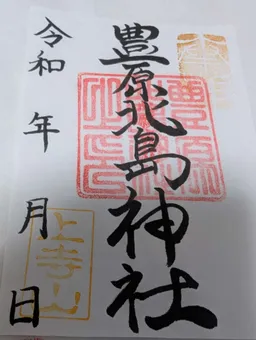 豊原北島神社
令和 年 月 日
上寺山